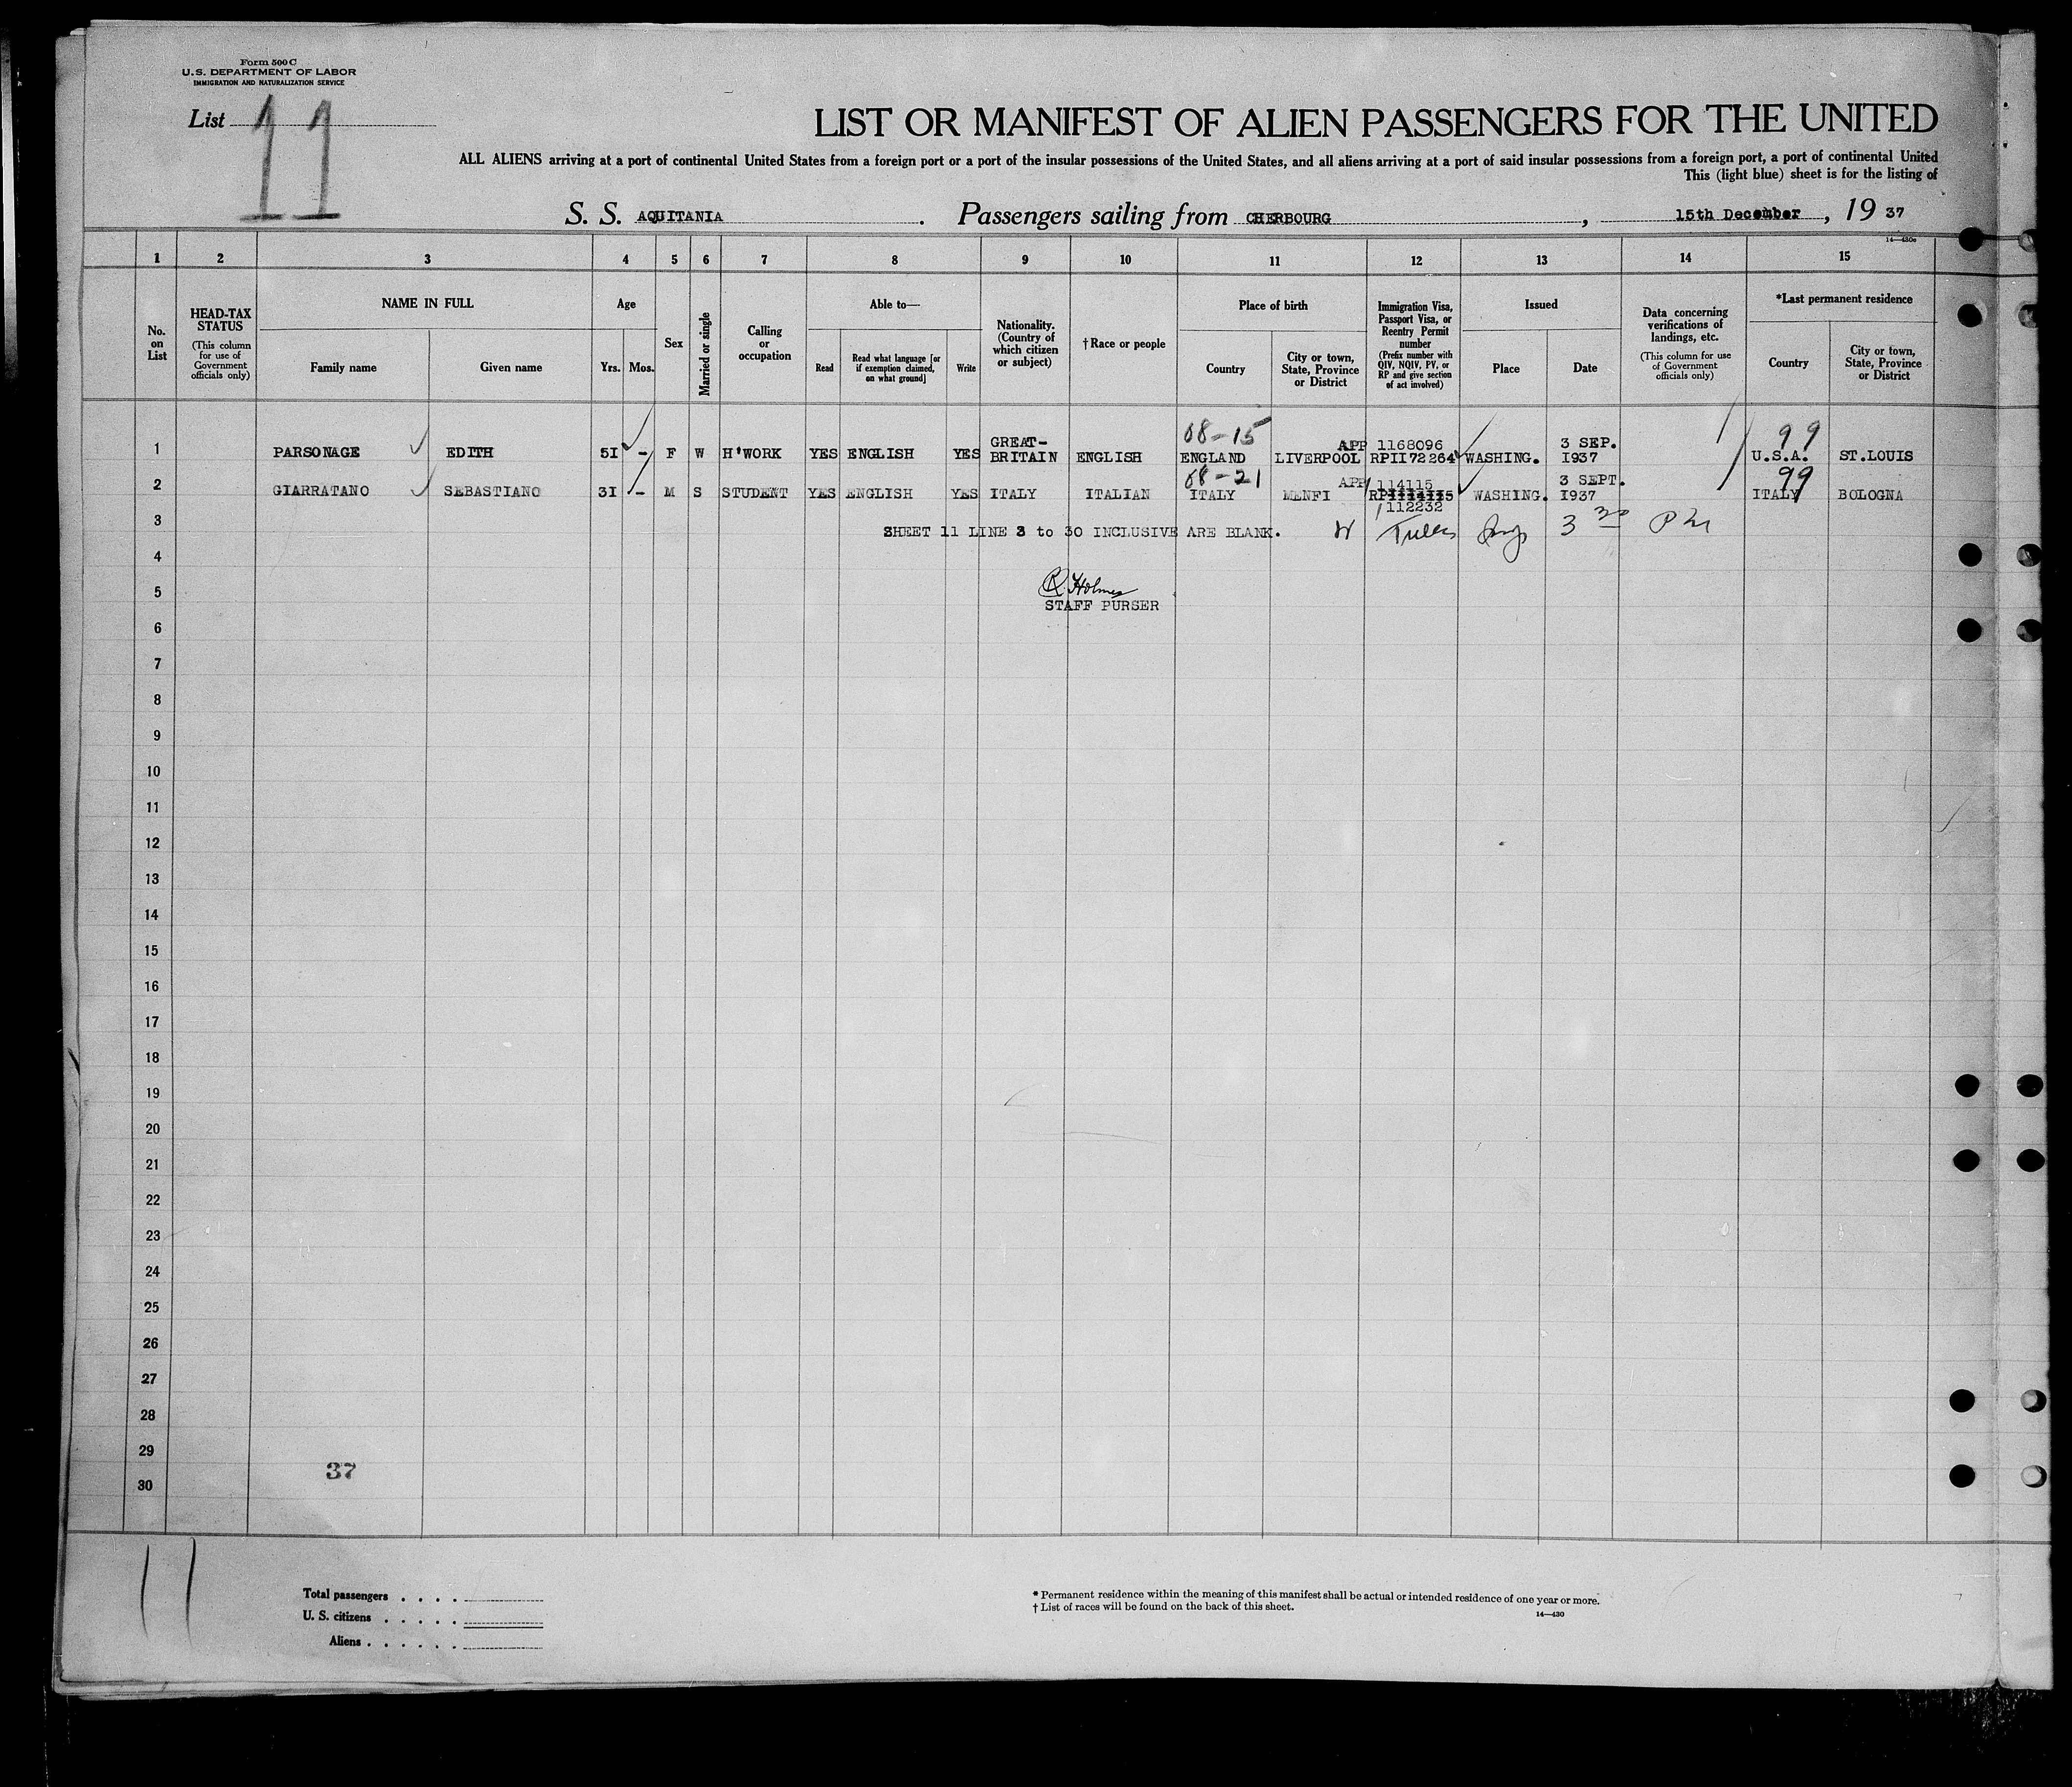 Form 500 C
U. S. DEPARTMENT OF LABOR
IMMIGRATION AND NATURALIZATION SERVICE
List 11
LIST OR MANIFEST OF ALIEN PASSENGERS FOR THE UNITED
ALL ALIENS arriving at a port of continental United States from a foreign port or a port of the insular possessions of the United States, and all aliens arriving at a port of said insular possessions from a foreign port, a port of continental United
This (light blue) sheet is for the listing of
S. S. AQUITANIA . Passengers sailing from CHERBOURG , 15th December , 19 37
14—430c
1 2 3 4 5 6 7 8 9 10 11 12 13 14 15
No. on List
HEAD-TAX STATUS
(This column for use of Government officials only)
NAME IN FULL
Family name Given name
Age
Yrs. Mos.
Sex
Married or single
Calling or occupation
Able to—
Read Read what language [or if exemption claimed, on what ground] Write
Nationality. (Country of which citizen or subject)
†Race or people
Place of birth
Country City or town, State, Province or District
Immigration Visa, Passport Visa, or Reentry Permit number
(Prefix number with QIV, NQIV, PV, or RP and give section of act involved)
Issued
Place Date
Data concerning verifications of landings, etc.
(This column for use of Government officials only)
*Last permanent residence
Country City or town, State, Province or District
08-15 99
GREAT- APP 1168096 3 SEP.
1 PARSONAGE EDITH 5I - F W H'WORK YES ENGLISH YES BRITAIN ENGLISH ENGLAND LIVERPOOL RPII72264 WASHING. I937 U.S.A. ST.LOUIS
08-21 99
APP 114115 3 SEPT.
2 GIARRATANO SEBASTIANO 3I - M S STUDENT YES ENGLISH YES ITALY ITALIAN ITALY MENFI WASHING. I937 ITALY BOLOGNA
112232
3 SHEET 11 LINE 3 to 30 INCLUSIVE ARE BLANK. 3 30 PM
4
R Holmes
5 STAFF PURSER
6
7
8
9
10
11
12
13
14
15
16
17
18
19
20
21
22
23
24
25
26
27
28
29
37
30
11
Total passengers . . . .
U. S. citizens . . . . .
Aliens . . . . . .
* Permanent residence within the meaning of this manifest shall be actual or intended residence of one year or more.
† List of races will be found on the back of this sheet.
14—430